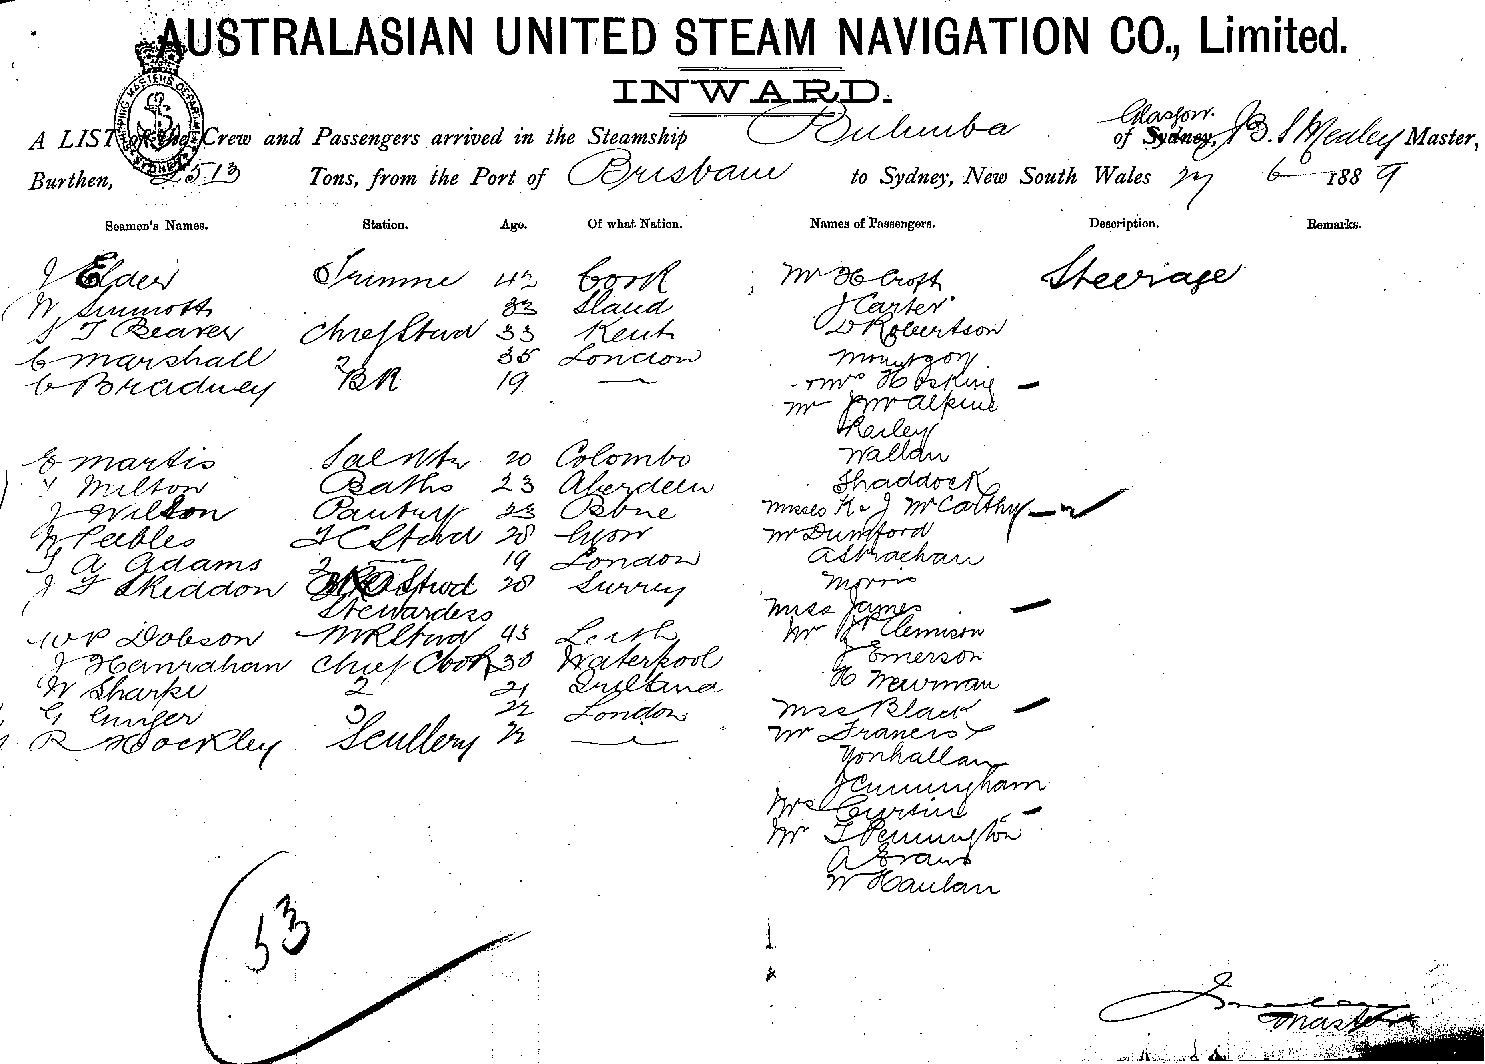 AUSTRALASIAN UNITED STEAM NAVIGATION CO., Limited.
INWARD.
Glasgow
A LIST of the Crew and Passengers arrived in the Steamship Bulimba of Sydney, J B S Mealey Master,
Burthen, 2513 Tons, from the Port of Brisbane to Sydney, New South Wales 27 6 1889
Seamen's Names. Station. Age. Of what Nation. Names of Passengers. Description. Remarks.
J Elder Trimmer 42 Cork Mr H Croft Steerage
W Sinnott 33 J Carter
T Beaver Chief Stwd 33 Kent D Robertson
C Marshall 2 35 London
C Bradney BR 19 — Mrs Hoskins —
Mr J McAlpine
Railey
E Martis Sal 20 Colombo Wallan
Milton Baths 23 Aberdeen Shaddock
J Wilson Pantry 23 Misses K & J McCarthy —
W Peebles FC Stwd 28 Lyon Mr Dunsford
T A Adams 2 — 19 London A Strachan
J F Skiddon Stwd 28 Surrey Morris
Stewardess Miss James —
W P Dobson MR Stwd 43 Leith Mr J P Clemison
J Hanrahan Chief Cook 30 Waterpool J Emerson
W Sharpe 2 21 H Newman
G Ginger 3 22 London Miss Black —
R Hockley Scullery 22 — Mr Francis
Yonhallan
J Cunningham
Mrs Curtin —
Mr T Pennington
A Evans
W Haulan
53
Master